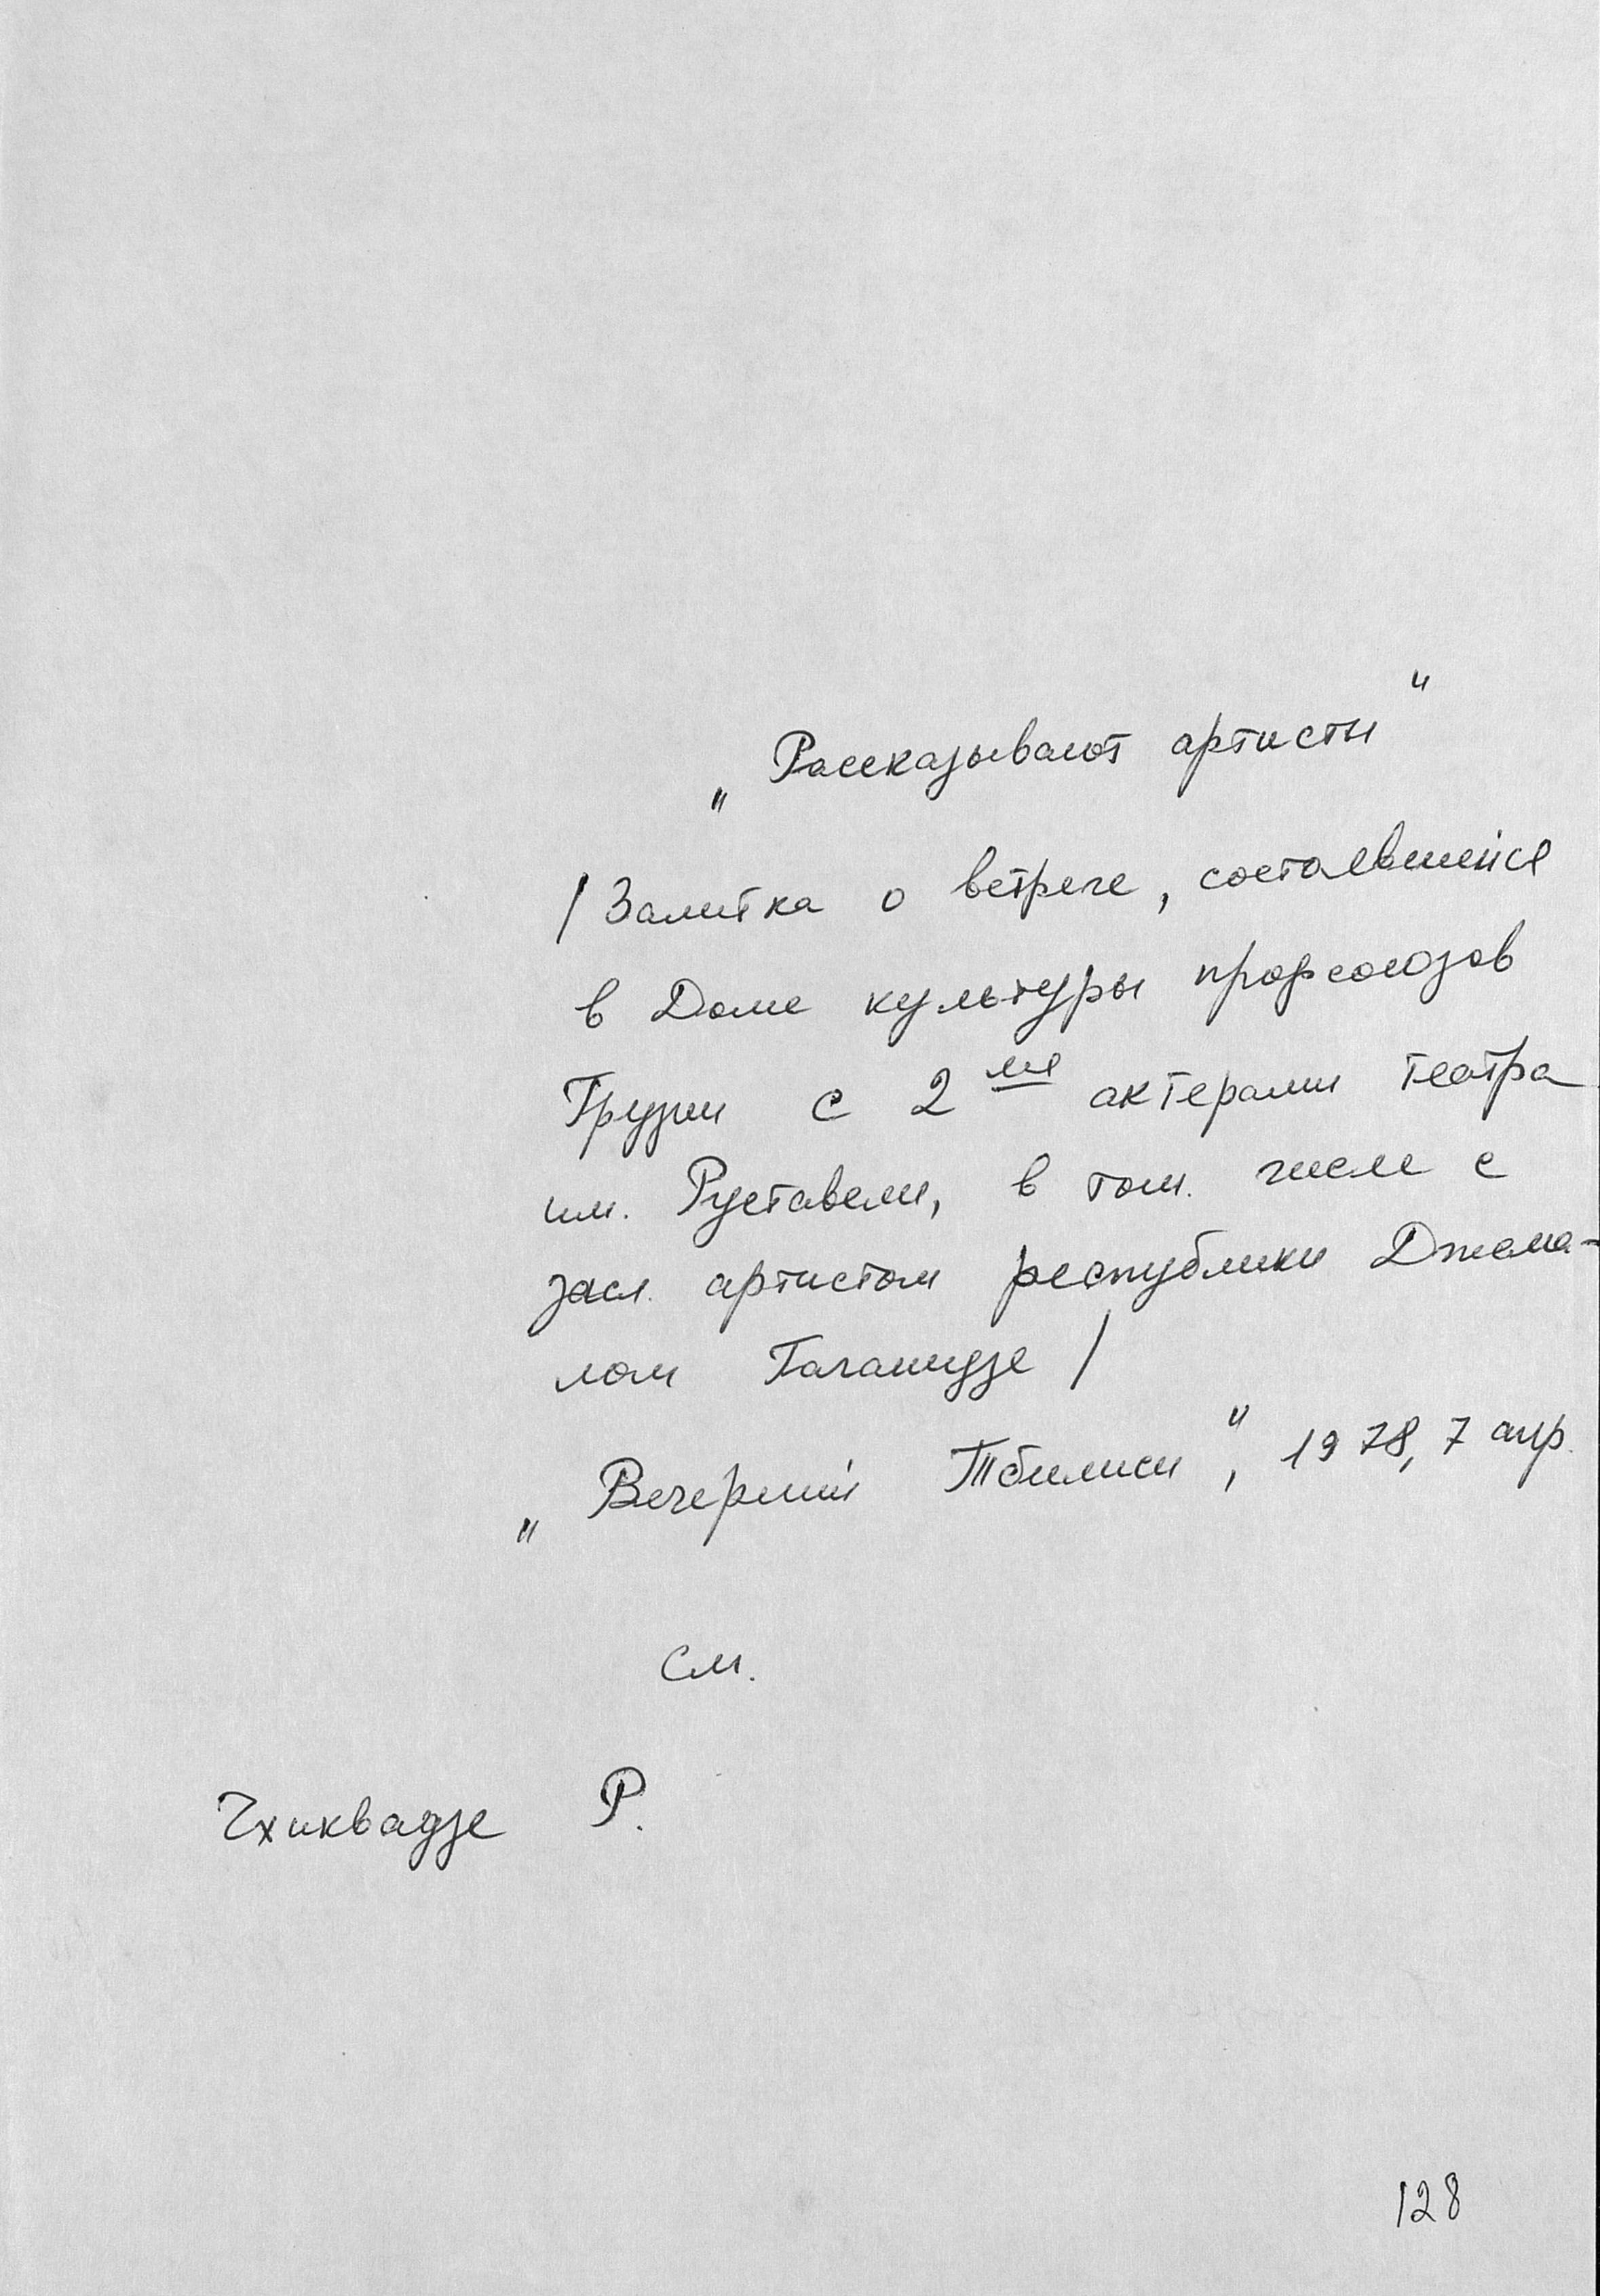 „Рассказывают артисты"
/Заметка о встрече, состоявшейся
в Доме культуры профсоюзов
Грузии с 2мя актерами театра
им. Руставели, в том. числе с
засл. артистом республики Джема-
лом Гаганидзе/
„Вечерний Тбилиси", 1978, 7 апр.
См.
Чхиквадзе Р.
128